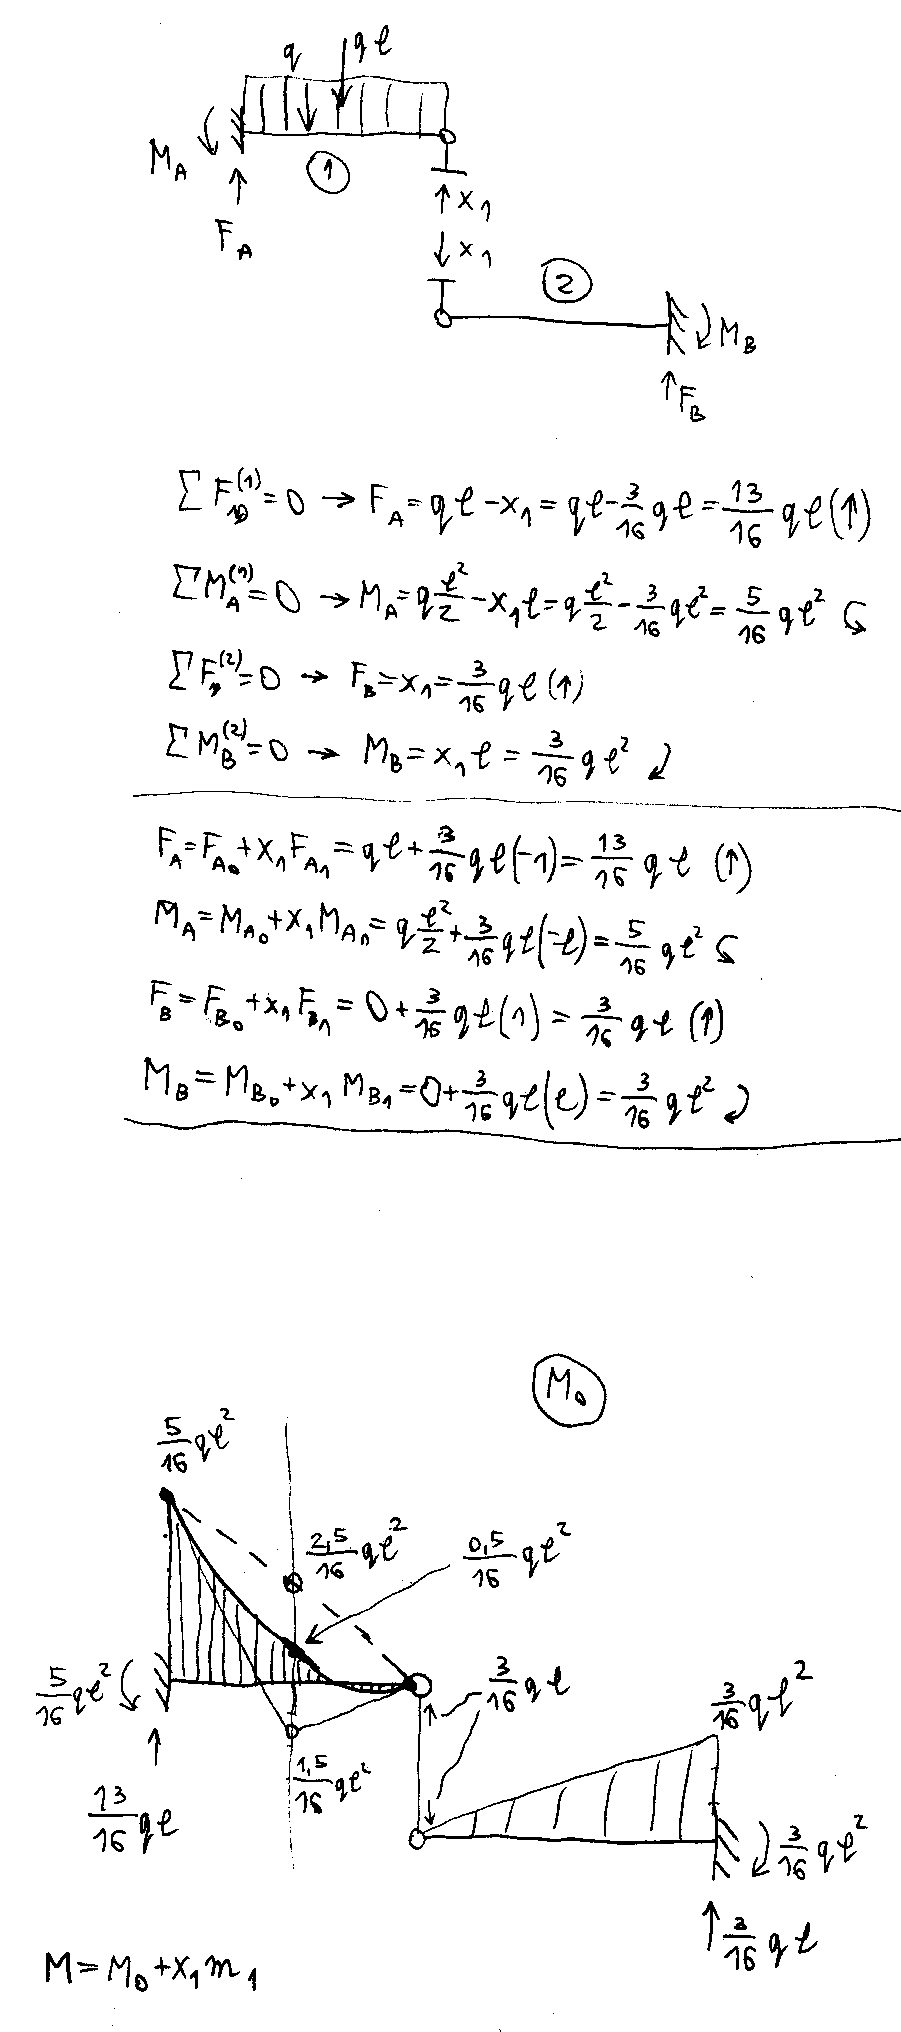 q qℓ
M_A
①
F_A
↑ X₁
↓ X₁
②
M_B
↑ F_B
ΣF^(1) = 0 → F_A = qℓ - X₁ = qℓ - 3/16 qℓ = 13/16 qℓ (↑)
ΣM_A^(1) = 0 → M_A = q ℓ²/2 - X₁ℓ = q ℓ²/2 - 3/16 qℓ² = 5/16 qℓ² ↺
ΣF^(2) = 0 → F_B = X₁ = 3/16 qℓ (↑)
ΣM_B^(2) = 0 → M_B = X₁ ℓ = 3/16 qℓ² ↻
F_A = F_A₀ + X₁ F_A₁ = qℓ + 3/16 qℓ (-1) = 13/16 qℓ (↑)
M_A = M_A₀ + X₁ M_A₁ = q ℓ²/2 + 3/16 qℓ (-ℓ) = 5/16 qℓ² ↺
F_B = F_B₀ + X₁ F_B₁ = 0 + 3/16 qℓ (1) = 3/16 qℓ (↑)
M_B = M_B₀ + X₁ M_B₁ = 0 + 3/16 qℓ (ℓ) = 3/16 qℓ² ↻
M₀
5/16 qℓ²
2,5/16 qℓ² 0,5/16 qℓ²
5/16 qℓ² 3/16 qℓ 3/16 qℓ²
1,5/16 qℓ²
13/16 qℓ 3/16 qℓ²
↑ 3/16 qℓ
M = M₀ + X₁ m₁